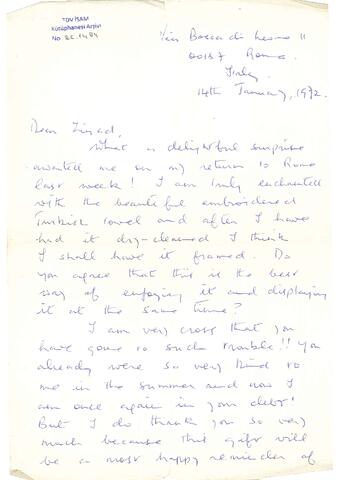 TDV İSAM
Kütüphanesi Arşivi
No 2E.1494
Via Bocca di Leone 11
00187 Roma.
Italy.
14th January, 1972.
Dear Ziyad,
What a delightful surprise
awaited me on my return to Rome
last week! I am truly enchanted
with the beautiful embroidered
Turkish towel and after I have
had it dry-cleaned I think
I shall have it framed. Do
you agree that this is the best
way of enjoying it and displaying
it at the same time?
I am very cross that you
have gone to such trouble!! You
already were so very kind to
me in the summer and now I
am once again in your debt!
But I do thank you so very
much because this gift will
be a most happy reminder of